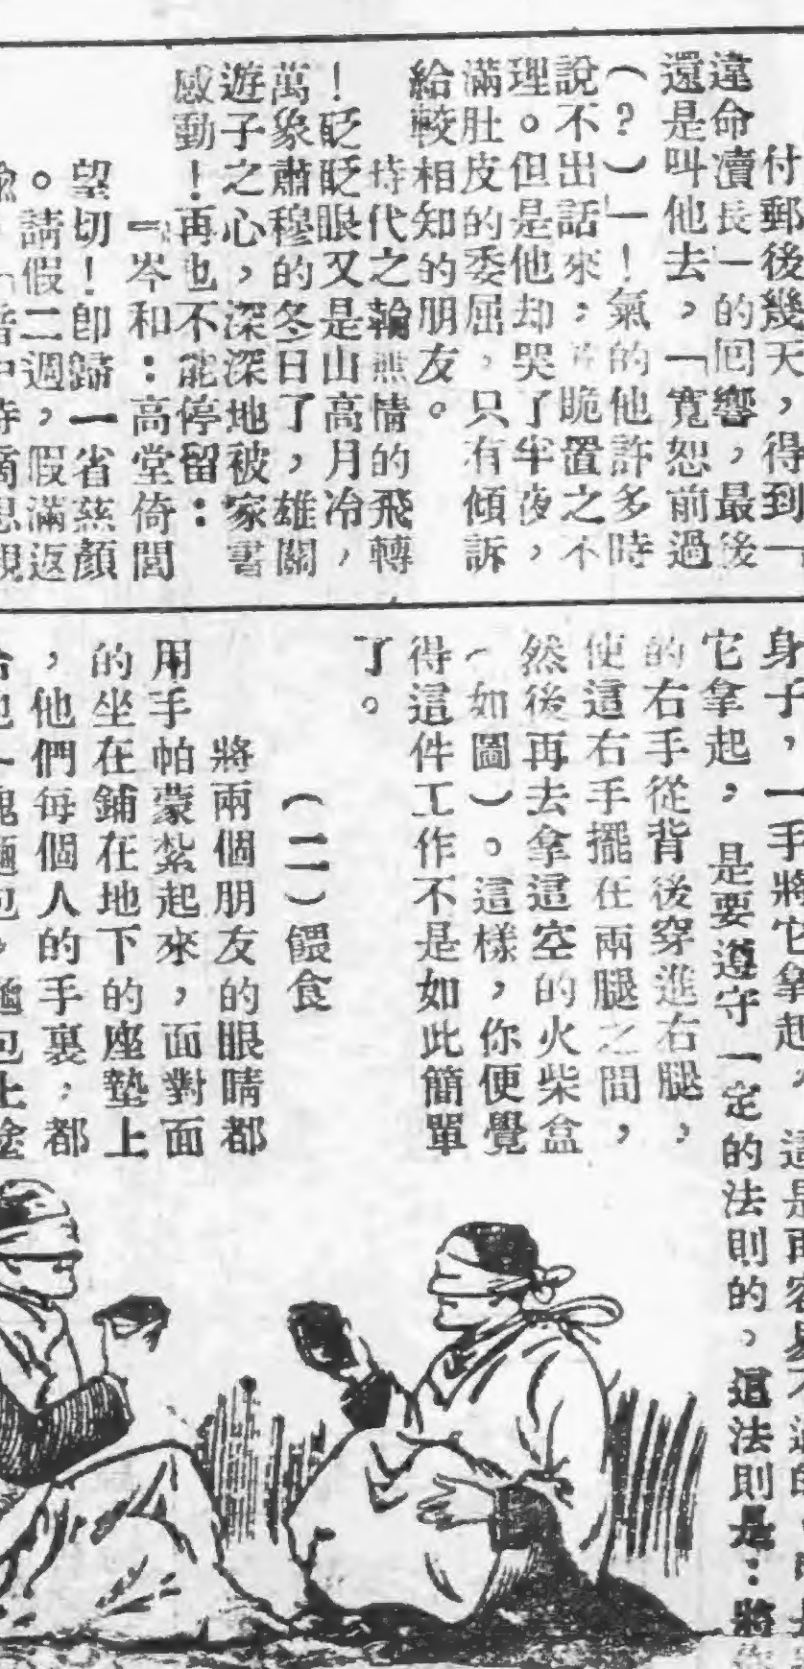 付郵後幾天，得到「
違命瀆長」的囘響，最後
還是叫他去，「寬恕前過
（？）」！氣的他許多時
說不出話來；脆置之不
理。但是他却哭了半夜，
滿肚皮的委屈，只有傾訴
給較相知的朋友。
時代之翰無情的飛轉
！眨眨眼又是山高月冷，
萬象肅穆的冬日了，雄關
遊子之心，深深地被家書
感動！再也不能停留：
『岑和：高堂倚閭
望切！卽歸一省慈顏
。請假二週，假滿返
身子，一手將它拿起，這是再容易不過的
它拿起，是要遵守一定的法則的。這法則是：將
的右手從背後穿進右腿，
使這右手擺在兩腿之間，
然後再去拿這空的火柴盒
（如圖）。這樣，你便覺
得這件工作不是如此簡單
了。
（二）餵食
將兩個朋友的眼睛都
用手帕蒙紮起來，面對面
的坐在鋪在地下的座墊上
，他們每個人的手裏，都